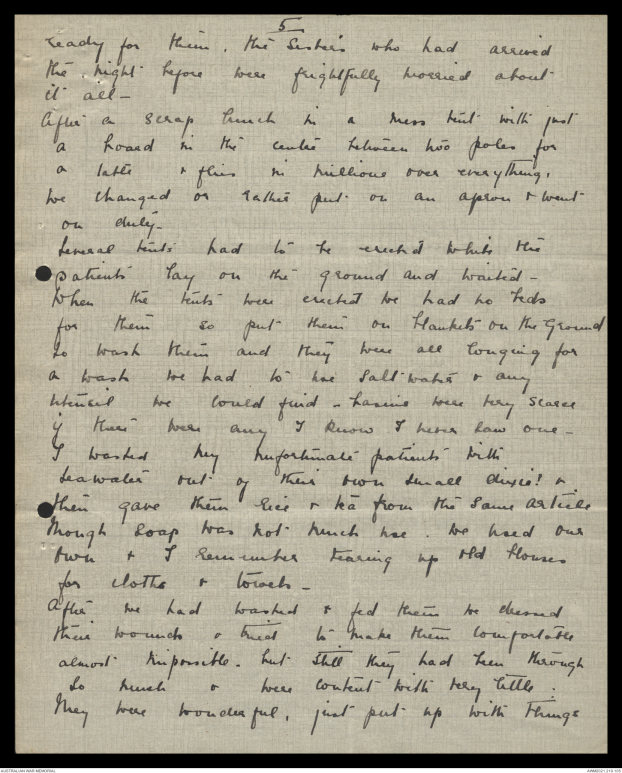 5
ready for them. the Sisters who had arrived
the night before were frightfully worried about
it all -
After a scrap lunch in a mess tent with just
a board in the centre between two poles for
a table & flies in millions over everything,
we changed or rather put on an apron & went
on duty -
Several tents had to be erected whilst the
patients lay on the ground and waited -
When the tents were erected we had no beds
for them so put them on blankets on the Ground
to wash them and they were all longing for
a wash we had to use Salt water & any
utensil we could find - basins were very scarce
if there were any I know I never saw one -
I washed my unfortunate patients with
Seawater out of their own small dixie! &
then gave them rice & tea from the same article
though Soap was not much use. We used our
own & I remember tearing up old blouses
for cloths & towels -
After we had washed & fed them we dressed
their wounds & tried to make them comfortable
almost impossible - but still they had been through
so much & were content with very little.
They were wonderful, just put up with things
AUSTRALIAN WAR MEMORIAL